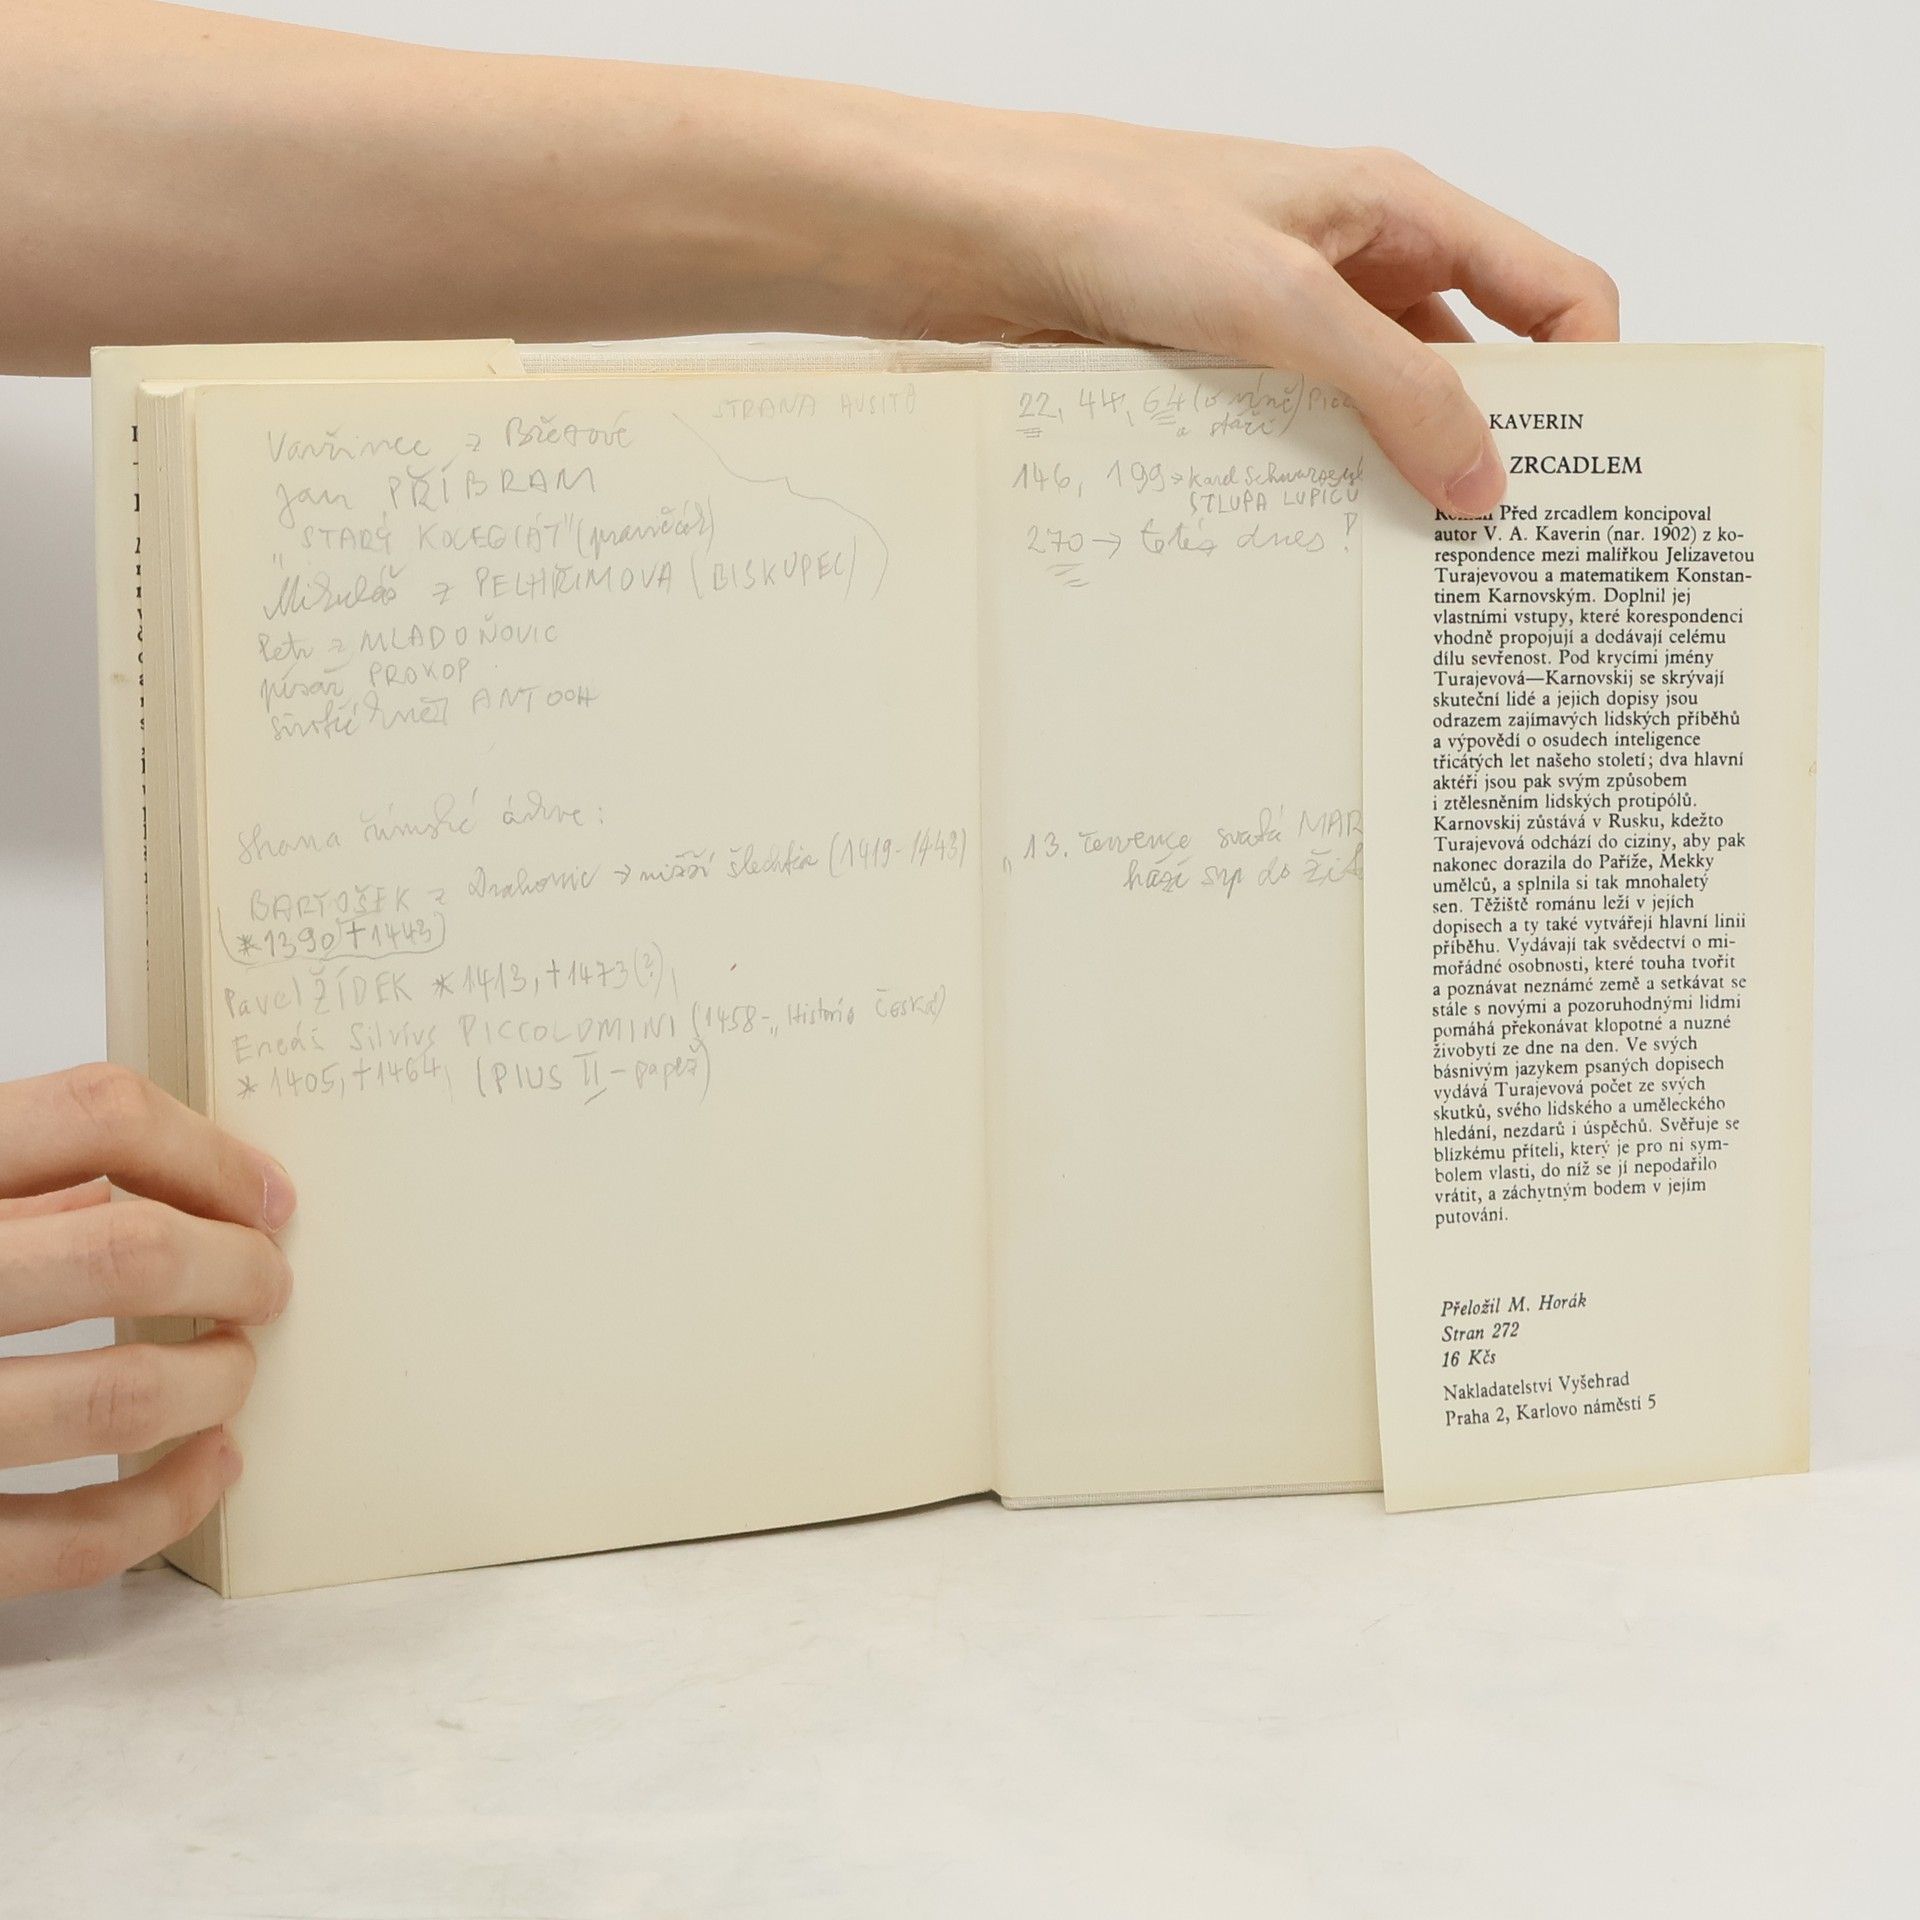 STRANA HUSITŮ
Vavřinec z Březové
Jan PŘÍBRAM
"STARÝ KOLEGIÁT" (pranýčář)
Mikuláš z PELHŘIMOVA (BISKUPEC)
Petr z MLADOŇOVIC
písař PROKOP
kněz ANTOCH
strana římské církve:
BARTOŠEK z Drahonic → nižší šlechtic (1419-1443)
*1390 +1443
Pavel ŽÍDEK *1413, +1473(?),
Eneáš Silvius PICCOLOMINI (1458-„Historie Česká)
* 1405, +1464, (PIUS II - papež)
22, 44, 64 (o víně)
a stáří
146, 199 → Karel
STLUPA LUPIČŮ
270 → totéž dnes!
"13. července svatá MAR
hází srp do
KAVERIN
ZRCADLEM
Román Před zrcadlem koncipoval
autor V. A. Kaverin (nar. 1902) z ko-
respondence mezi malířkou Jelizavetou
Turajevovou a matematikem Konstan-
tinem Karnovským. Doplnil jej
vlastními vstupy, které korespondenci
vhodně propojují a dodávají celému
dílu sevřenost. Pod krycími jmény
Turajevová—Karnovskij se skrývají
skuteční lidé a jejich dopisy jsou
odrazem zajímavých lidských příběhů
a výpovědí o osudech inteligence
třicátých let našeho století; dva hlavní
aktéři jsou pak svým způsobem
i ztělesněním lidských protipólů.
Karnovskij zůstává v Rusku, kdežto
Turajevová odchází do ciziny, aby pak
nakonec dorazila do Paříže, Mekky
umělců, a splnila si tak mnohaletý
sen. Těžiště románu leží v jejích
dopisech a ty také vytvářejí hlavní linii
příběhu. Vydávají tak svědectví o mi-
mořádné osobnosti, které touha tvořit
a poznávat neznámé země a setkávat se
stále s novými a pozoruhodnými lidmi
pomáhá překonávat klopotné a nuzné
živobytí ze dne na den. Ve svých
básnivým jazykem psaných dopisech
vydává Turajevová počet ze svých
skutků, svého lidského a uměleckého
hledání, nezdarů i úspěchů. Svěřuje se
blízkému příteli, který je pro ni sym-
bolem vlasti, do níž se jí nepodařilo
vrátit, a záchytným bodem v jejím
putování.
Přeložil M. Horák
Stran 272
16 Kčs
Nakladatelství Vyšehrad
Praha 2, Karlovo náměstí 5